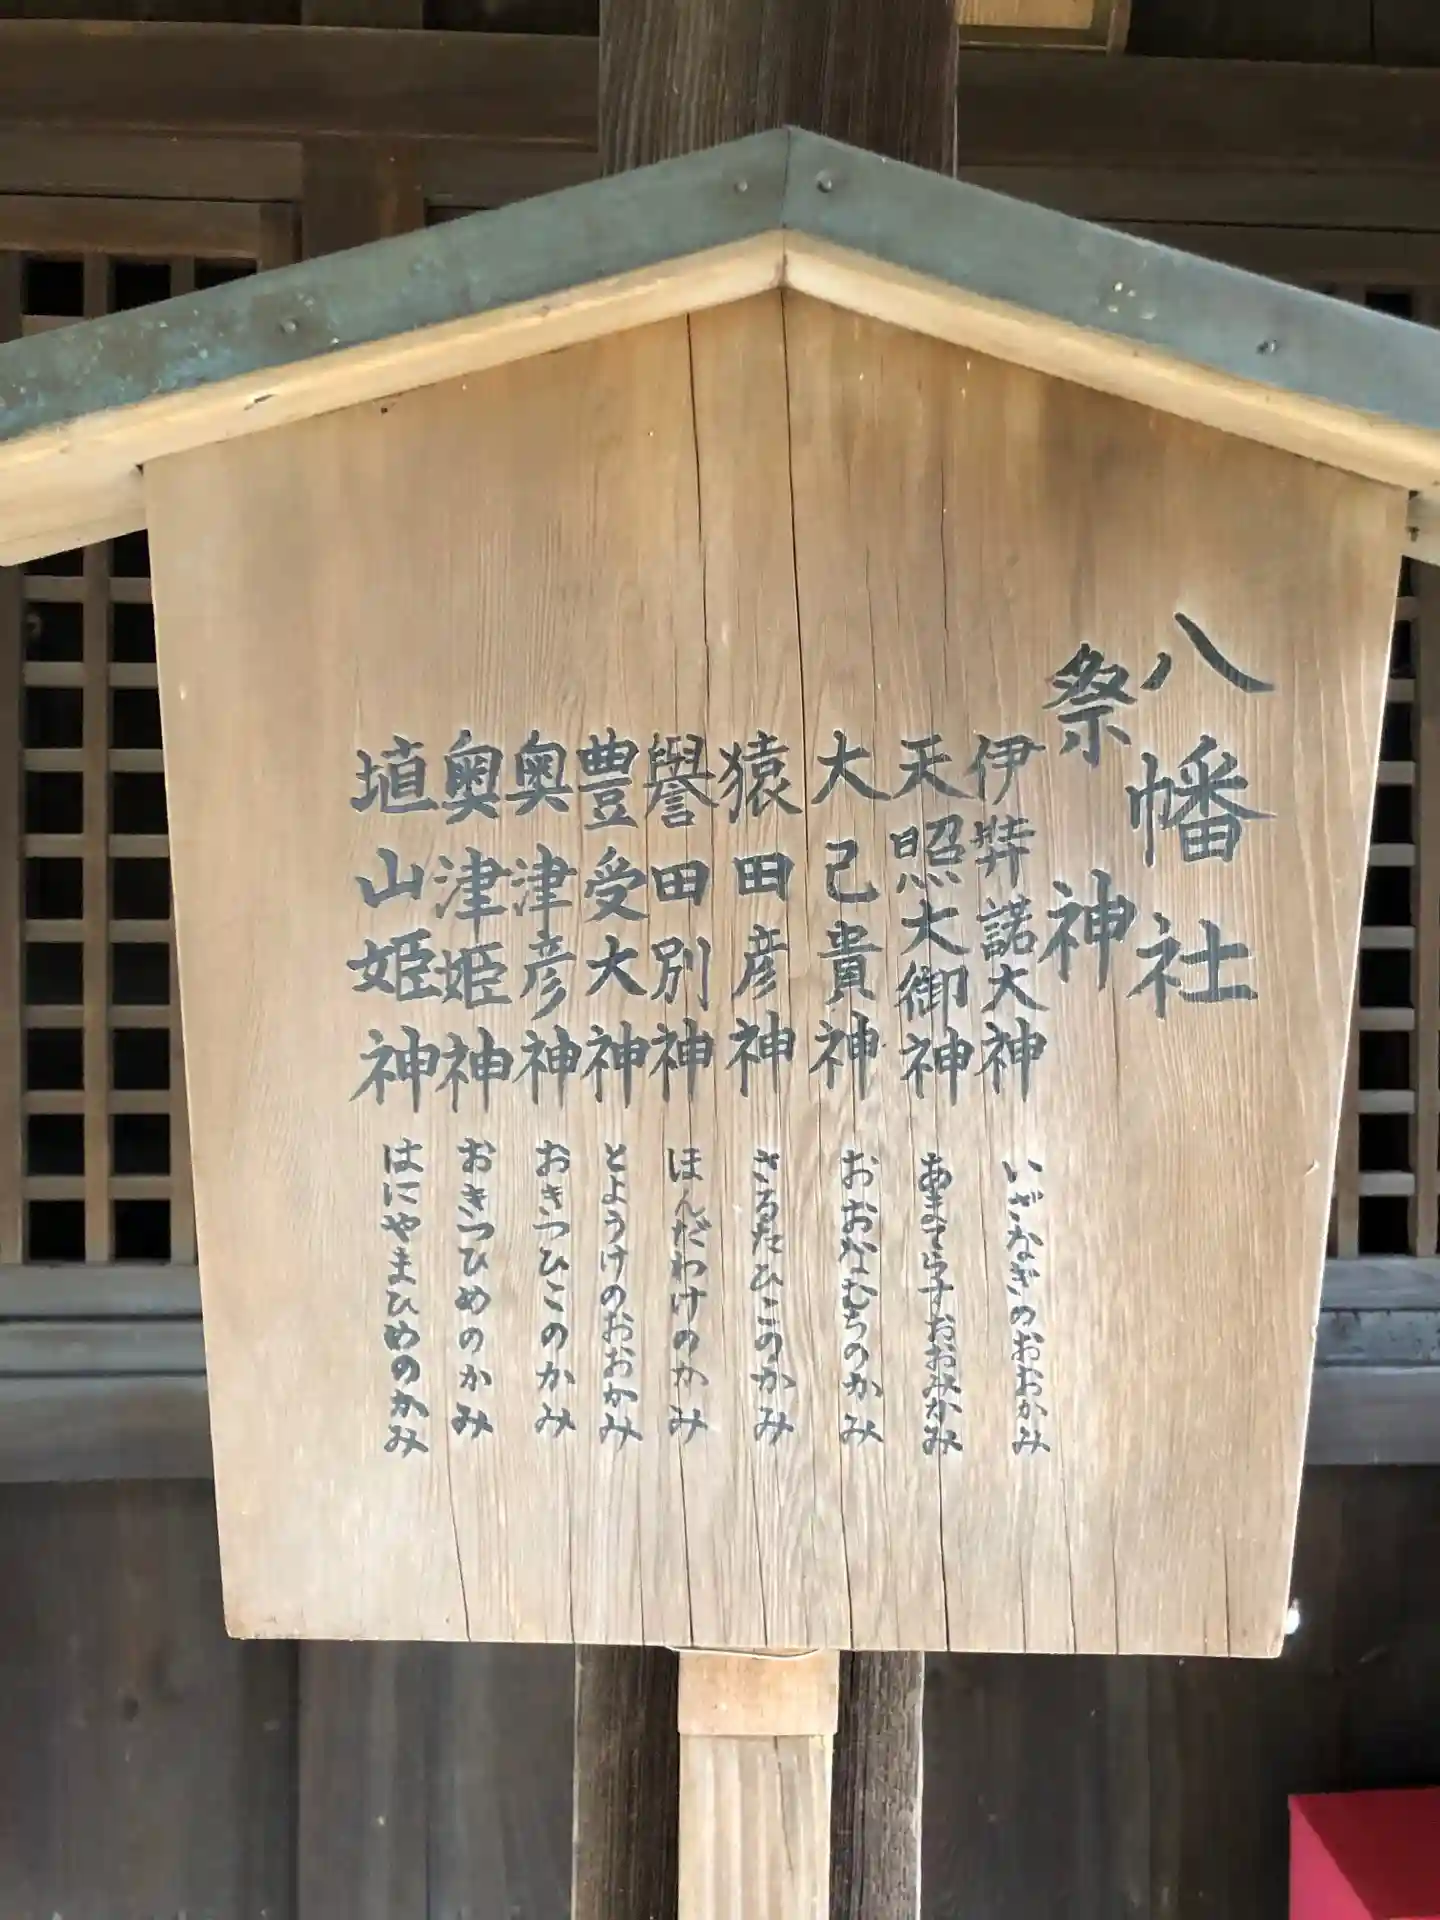 八幡神社
祭神
伊弉諾大神 いざなぎのおおかみ
天照大御神 あまてらすおおみかみ
大己貴神 おおなむちのかみ
猿田彦神 さるたひこのかみ
譽田別神 ほんだわけのかみ
豊受大神 とようけのおおかみ
奥津彦神 おきつひこのかみ
奥津姫神 おきつひめのかみ
埴山姫神 はにやまひめのかみ